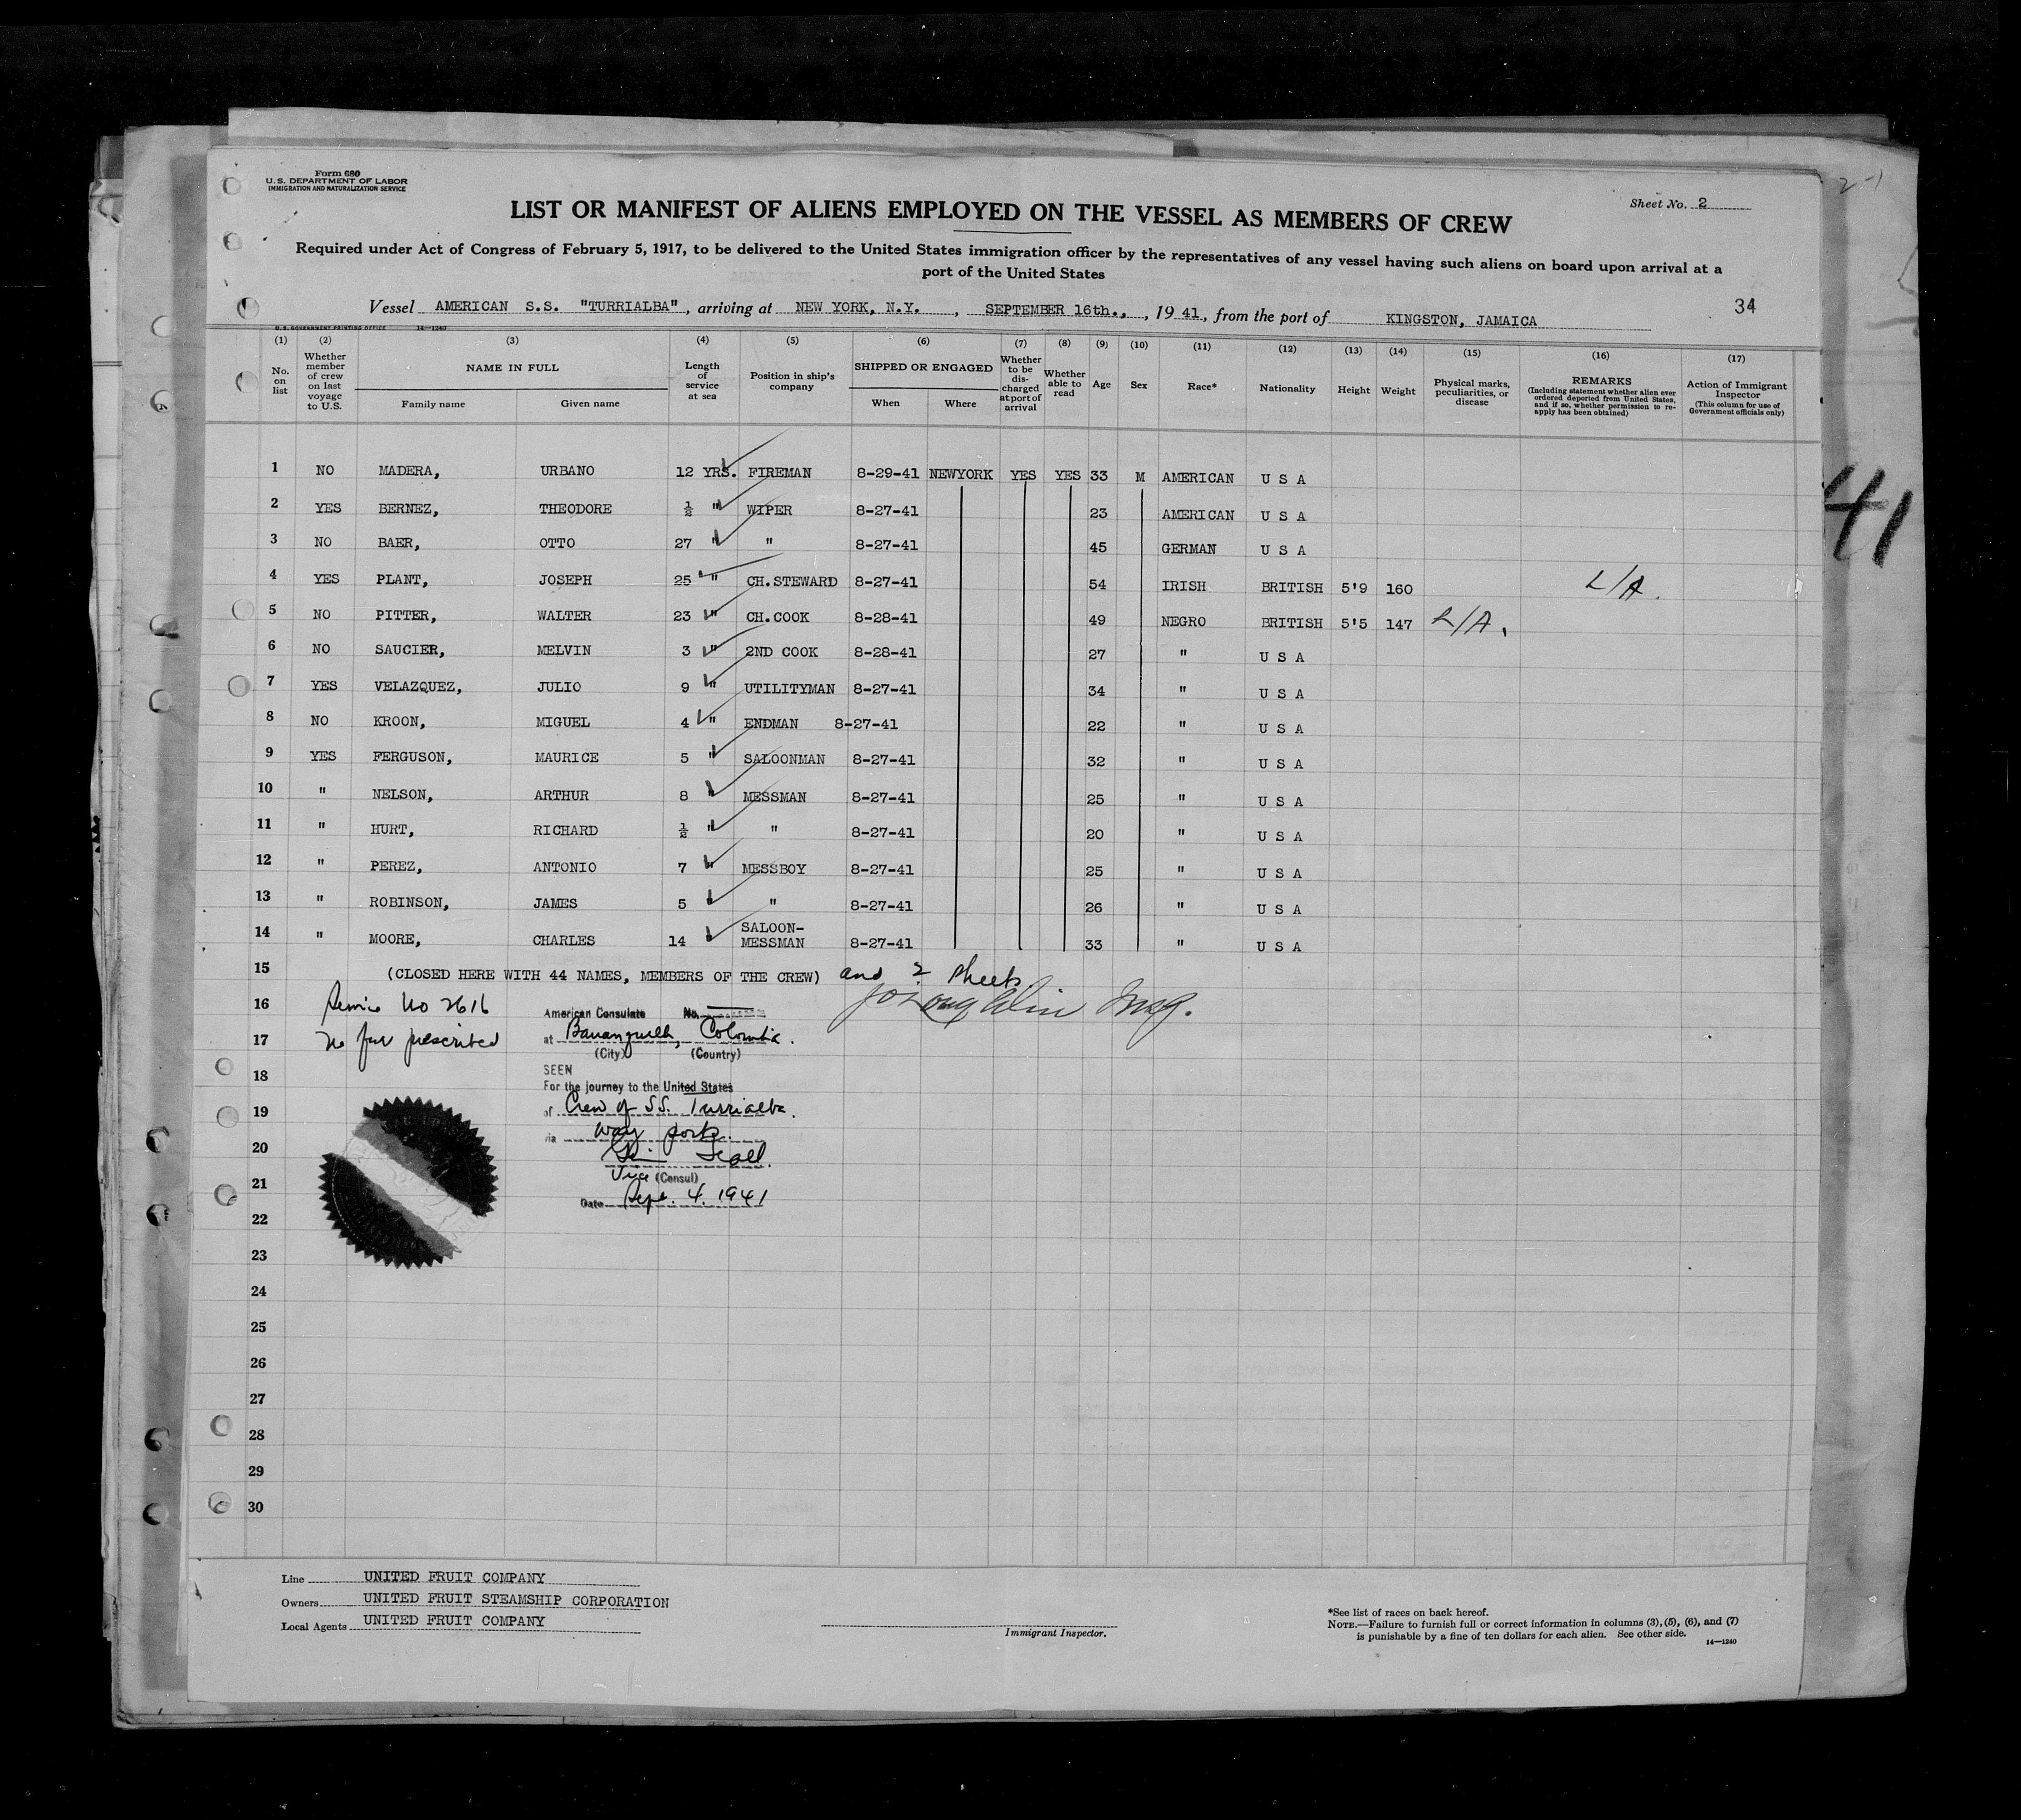 Form 680
U.S. DEPARTMENT OF LABOR
IMMIGRATION AND NATURALIZATION SERVICE
2-1
Sheet No. 2
LIST OR MANIFEST OF ALIENS EMPLOYED ON THE VESSEL AS MEMBERS OF CREW
Required under Act of Congress of February 5, 1917, to be delivered to the United States immigration officer by the representatives of any vessel having such aliens on board upon arrival at a
port of the United States
Vessel AMERICAN S.S. "TURRIALBA", arriving at NEW YORK, N.Y. , SEPTEMBER 16th., , 19 41, from the port of KINGSTON, JAMAICA
34
U.S. GOVERNMENT PRINTING OFFICE 14—1240
(1) No. on list
(2) Whether member of crew on last voyage to U.S.
(3) NAME IN FULL Family name Given name
(4) Length of service at sea
(5) Position in ship's company
(6) SHIPPED OR ENGAGED When Where
(7) Whether to be discharged at port of arrival
(8) Whether able to read
(9) Age
(10) Sex
(11) Race*
(12) Nationality
(13) Height
(14) Weight
(15) Physical marks, peculiarities, or disease
(16) REMARKS (Including statement whether alien ever ordered deported from United States, and if so, whether permission to re-apply has been obtained)
(17) Action of Immigrant Inspector (This column for use of Government officials only)
1 NO MADERA, URBANO 12 YRS. FIREMAN 8-29-41 NEWYORK YES YES 33 M AMERICAN U S A
2 YES BERNEZ, THEODORE ½ " WIPER 8-27-41 23 AMERICAN U S A
3 NO BAER, OTTO 27 " " 8-27-41 45 GERMAN U S A
4 YES PLANT, JOSEPH 25 " CH.STEWARD 8-27-41 54 IRISH BRITISH 5'9 160 L/A.
5 NO PITTER, WALTER 23 " CH.COOK 8-28-41 49 NEGRO BRITISH 5'5 147 L/A.
6 NO SAUCIER, MELVIN 3 " 2ND COOK 8-28-41 27 " U S A
7 YES VELAZQUEZ, JULIO 9 " UTILITYMAN 8-27-41 34 " U S A
8 NO KROON, MIGUEL 4 " ENDMAN 8-27-41 22 " U S A
9 YES FERGUSON, MAURICE 5 " SALOONMAN 8-27-41 32 " U S A
10 " NELSON, ARTHUR 8 " MESSMAN 8-27-41 25 " U S A
11 " HURT, RICHARD ½ " " 8-27-41 20 " U S A
12 " PEREZ, ANTONIO 7 " MESSBOY 8-27-41 25 " U S A
13 " ROBINSON, JAMES 5 " " 8-27-41 26 " U S A
14 " MOORE, CHARLES 14 " SALOON-
MESSMAN 8-27-41 33 " U S A
41
15 (CLOSED HERE WITH 44 NAMES, MEMBERS OF THE CREW) and 2 sheets
16 Service No 2616
17 No fee prescribed
American Consulate No.
at Barranquilla, Colombia.
(City) (Country)
18 SEEN
For the journey to the United States
19 of Crew of S.S. Turrialba.
via way ports.
20
21 Vice (Consul)
Date Sept. 4. 1941
22
23
24
25
26
27
28
29
30
Line UNITED FRUIT COMPANY
Owners UNITED FRUIT STEAMSHIP CORPORATION
Local Agents UNITED FRUIT COMPANY
Immigrant Inspector.
*See list of races on back hereof.
NOTE.—Failure to furnish full or correct information in columns (3), (5), (6), and (7)
is punishable by a fine of ten dollars for each alien. See other side.
14—1240